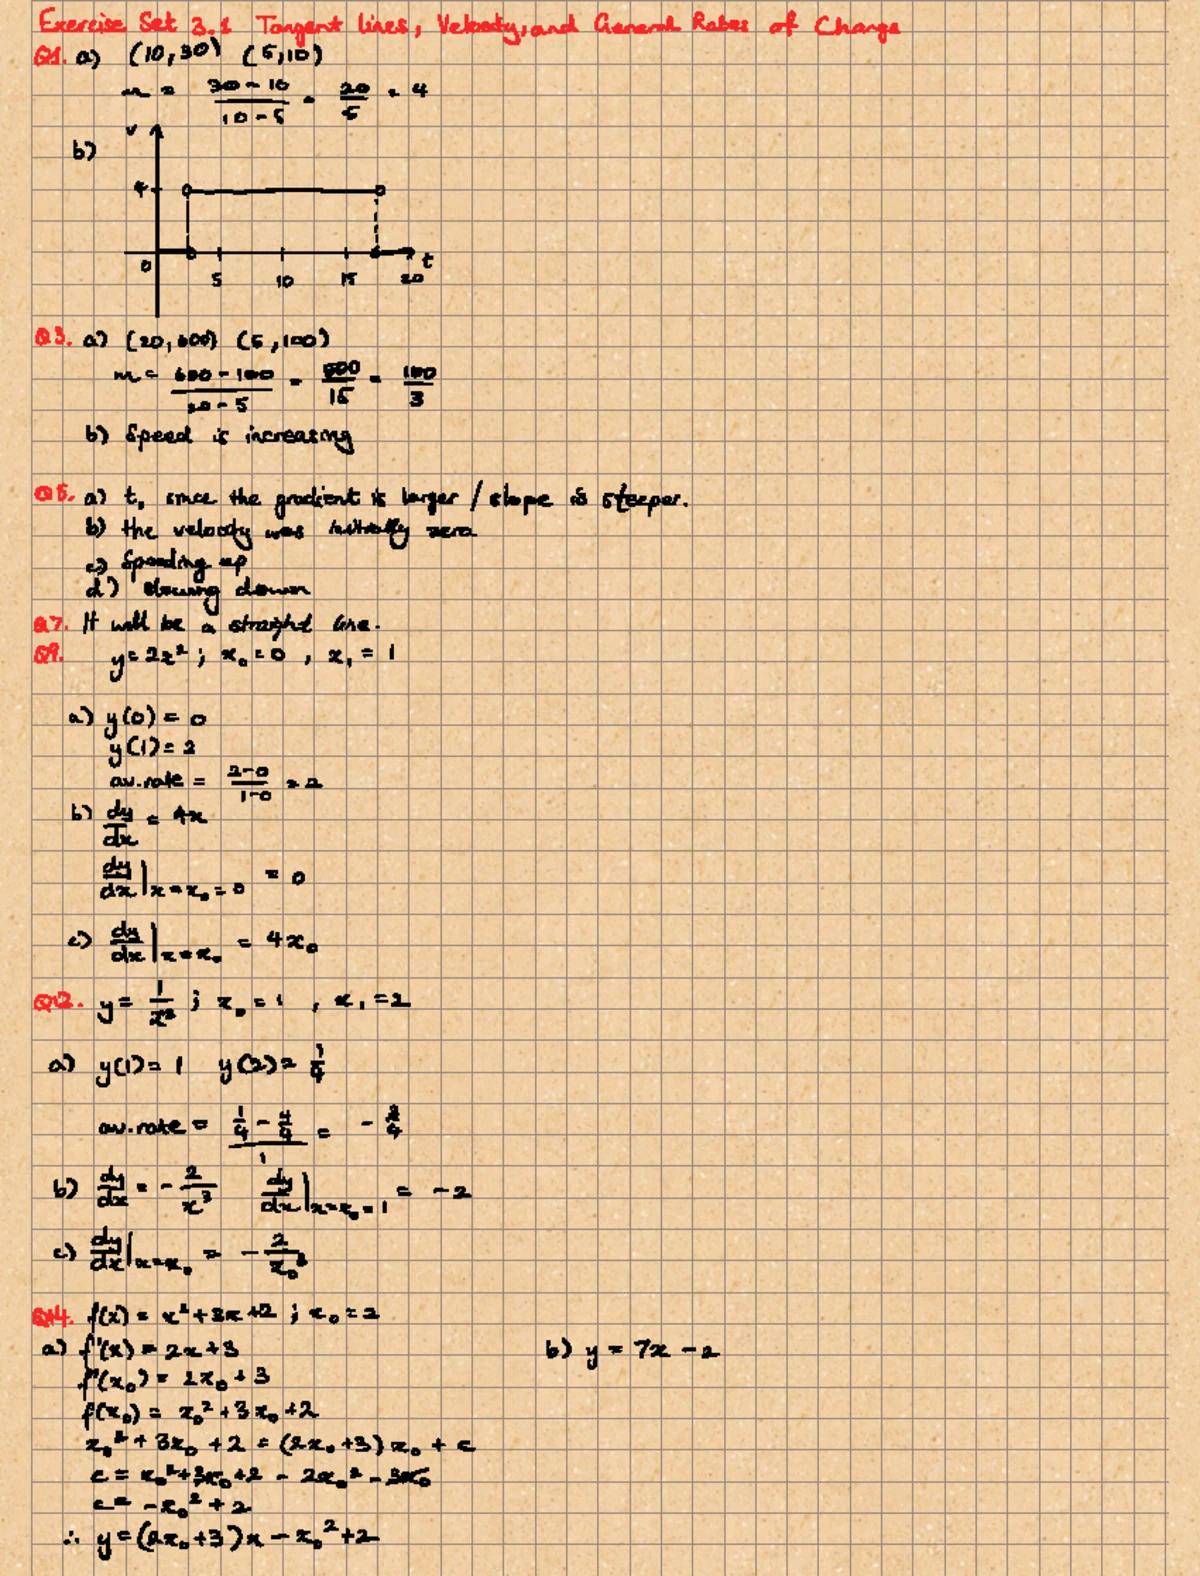 Exercise Set 3.1 Tangent lines, Velocity, and General Rates of Change
Q1. a) (10,30) (5,10)
m = (30-10)/(10-5) = 20/5 = 4
b)
v
4
0 5 10 15 20 t
Q3. a) (20,600) (5,100)
m = (600-100)/(20-5) = 500/15 = 100/3
b) Speed is increasing
Q5. a) t₀ since the gradient is larger / slope is steeper.
b) the velocity was initially zero
c) Speeding up
d) slowing down
Q7. It will be a straight line.
Q9. y = 2x² ; x₀ = 0 , x₁ = 1
a) y(0) = 0
y(1) = 2
av.rate = (2-0)/(1-0) = 2
b) dy/dx = 4x
dy/dx |x=x₀=0 = 0
c) dy/dx |x=x₀ = 4x₀
Q12. y = 1/x² ; x₀ = 1 , x₁ = 2
a) y(1) = 1 y(2) = 1/4
av.rate = (1/4 - 4/4)/1 = -3/4
b) dy/dx = -2/x³ dy/dx |x=x₀=1 = -2
c) dy/dx |x=x₀ = -2/x₀³
Q14. f(x) = x² + 3x + 2 ; x₀ = 2
a) f'(x) = 2x+3
f'(x₀) = 2x₀ + 3
f(x₀) = x₀² + 3x₀ + 2
x₀² + 3x₀ + 2 = (2x₀+3)x₀ + c
c = x₀² + 3x₀ + 2 - 2x₀² - 3x₀
c = -x₀² + 2
∴ y = (2x₀+3)x - x₀² + 2
b) y = 7x - 2